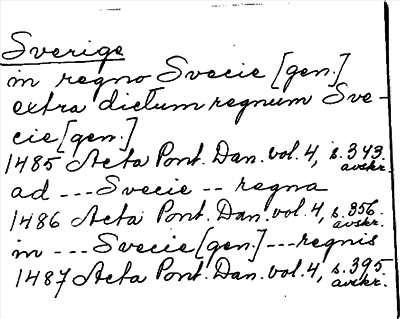 Sverige
in regno Svecie [gen.]
extra dictum regnum Sve-
cie [gen.]
1485 Acta Pont. Dan. vol. 4, s. 343.
avskr.
ad --- Svecie -- regna
1486 Acta Pont. Dan. vol. 4, s. 356.
avskr.
in --- Svecie [gen.] --- regnis
1487 Acta Pont. Dan. vol. 4, s. 395.
avskr.